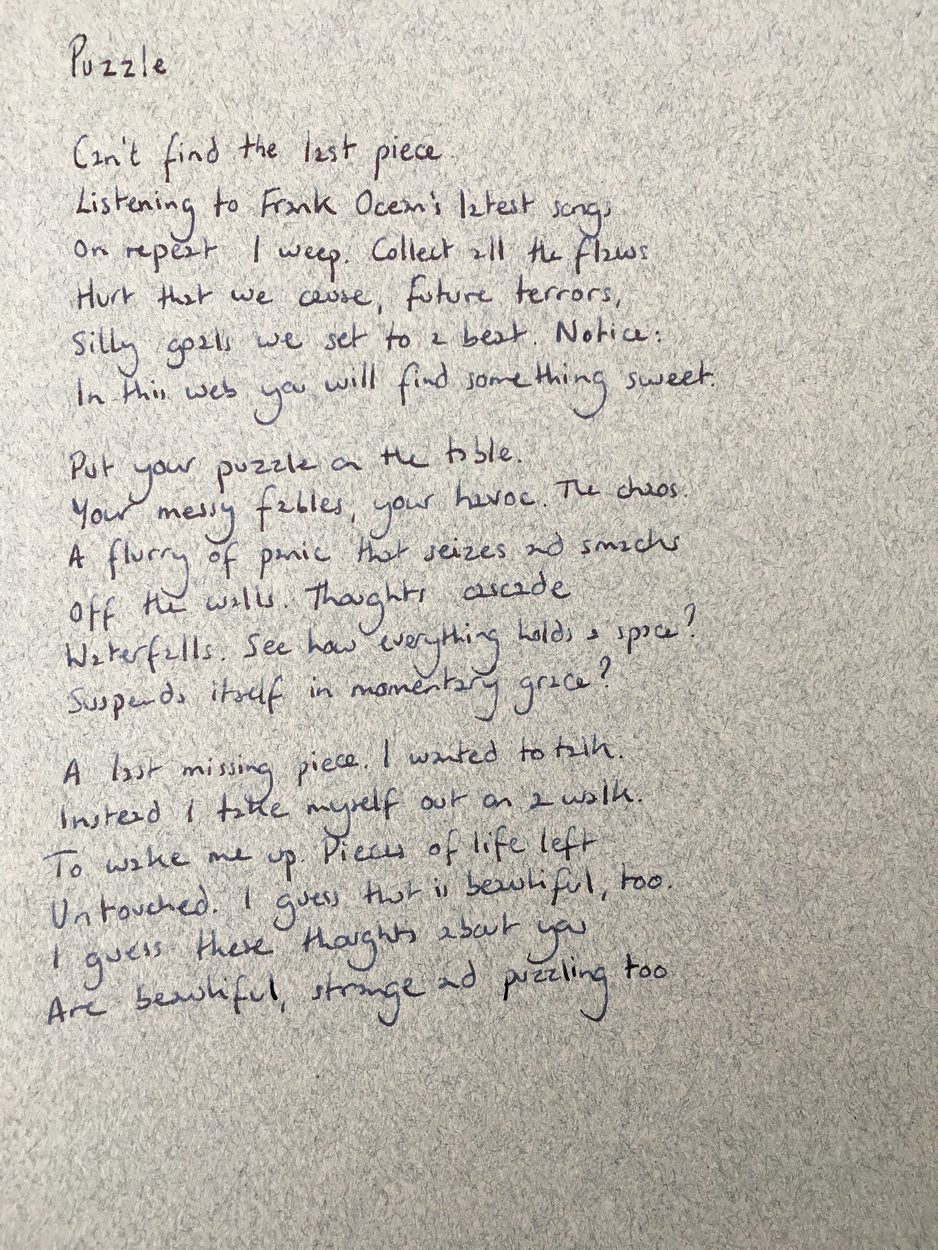 Puzzle
Can't find the last piece.
Listening to Frank Ocean's latest songs
On repeat I weep. Collect all the flaws
Hurt that we cause, future terrors,
Silly goals we set to a beat. Notice:
In this web you will find something sweet.
Put your puzzle on the table.
Your messy fables, your havoc. The chaos.
A flurry of panic that seizes and smacks
Off the walls. Thoughts cascade
Waterfalls. See how everything holds a space?
Suspends itself in momentary grace?
A last missing piece. I wanted to talk.
Instead I take myself out on a walk.
To wake me up. Pieces of life left
Untouched. I guess that is beautiful, too.
I guess these thoughts about you
Are beautiful, strange and puzzling too